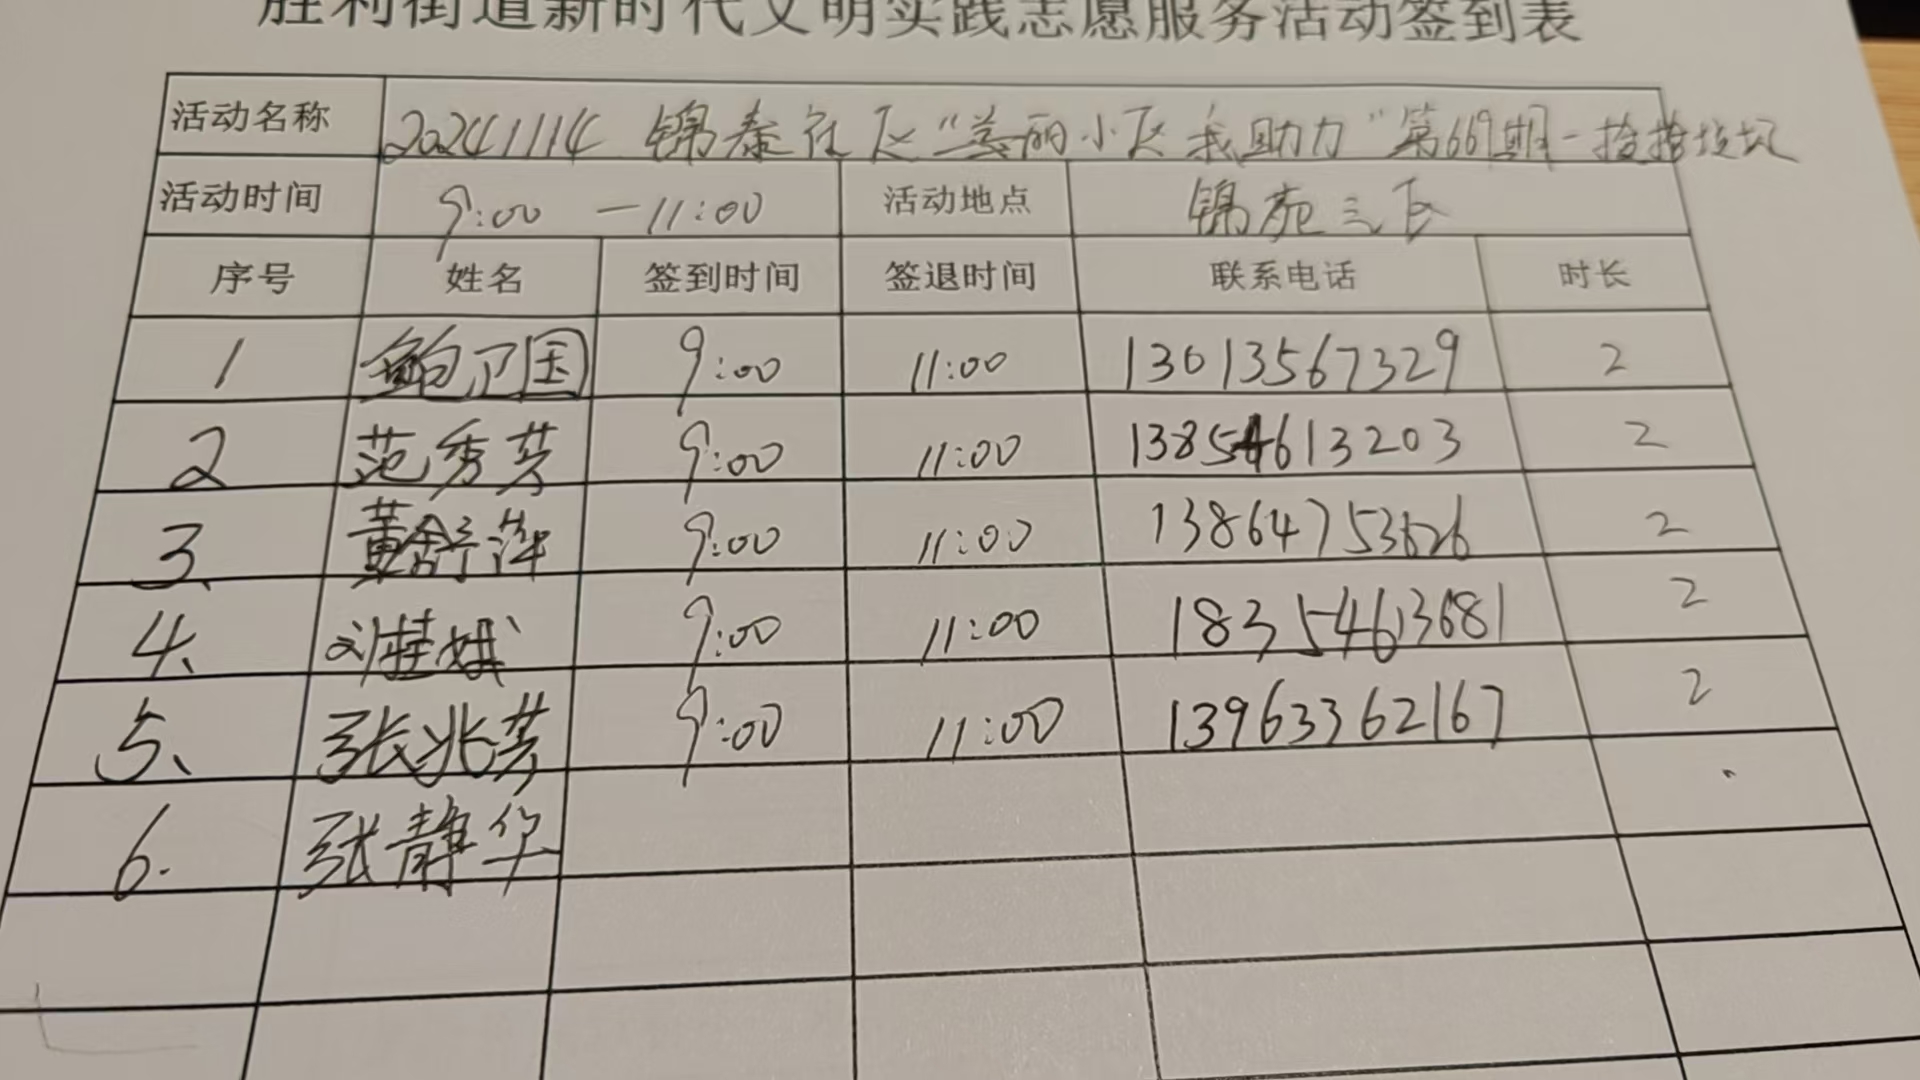 胜利街道新时代文明实践志愿服务活动签到表
活动名称 20241114 锦泰社区“美丽小区 我助力”第669期-捡捡垃圾
活动时间 9:00 — 11:00 活动地点 锦苑三区
序号 姓名 签到时间 签退时间 联系电话 时长
1 鲍卫国 9:00 11:00 13013567329 2
2 范秀芳 9:00 11:00 13854613203 2
3、 黄舒萍 9:00 11:00 13864753626 2
4、 刘桂娥 9:00 11:00 18354613681 2
5、 张兆芳 9:00 11:00 13963362167 2
6. 张静华